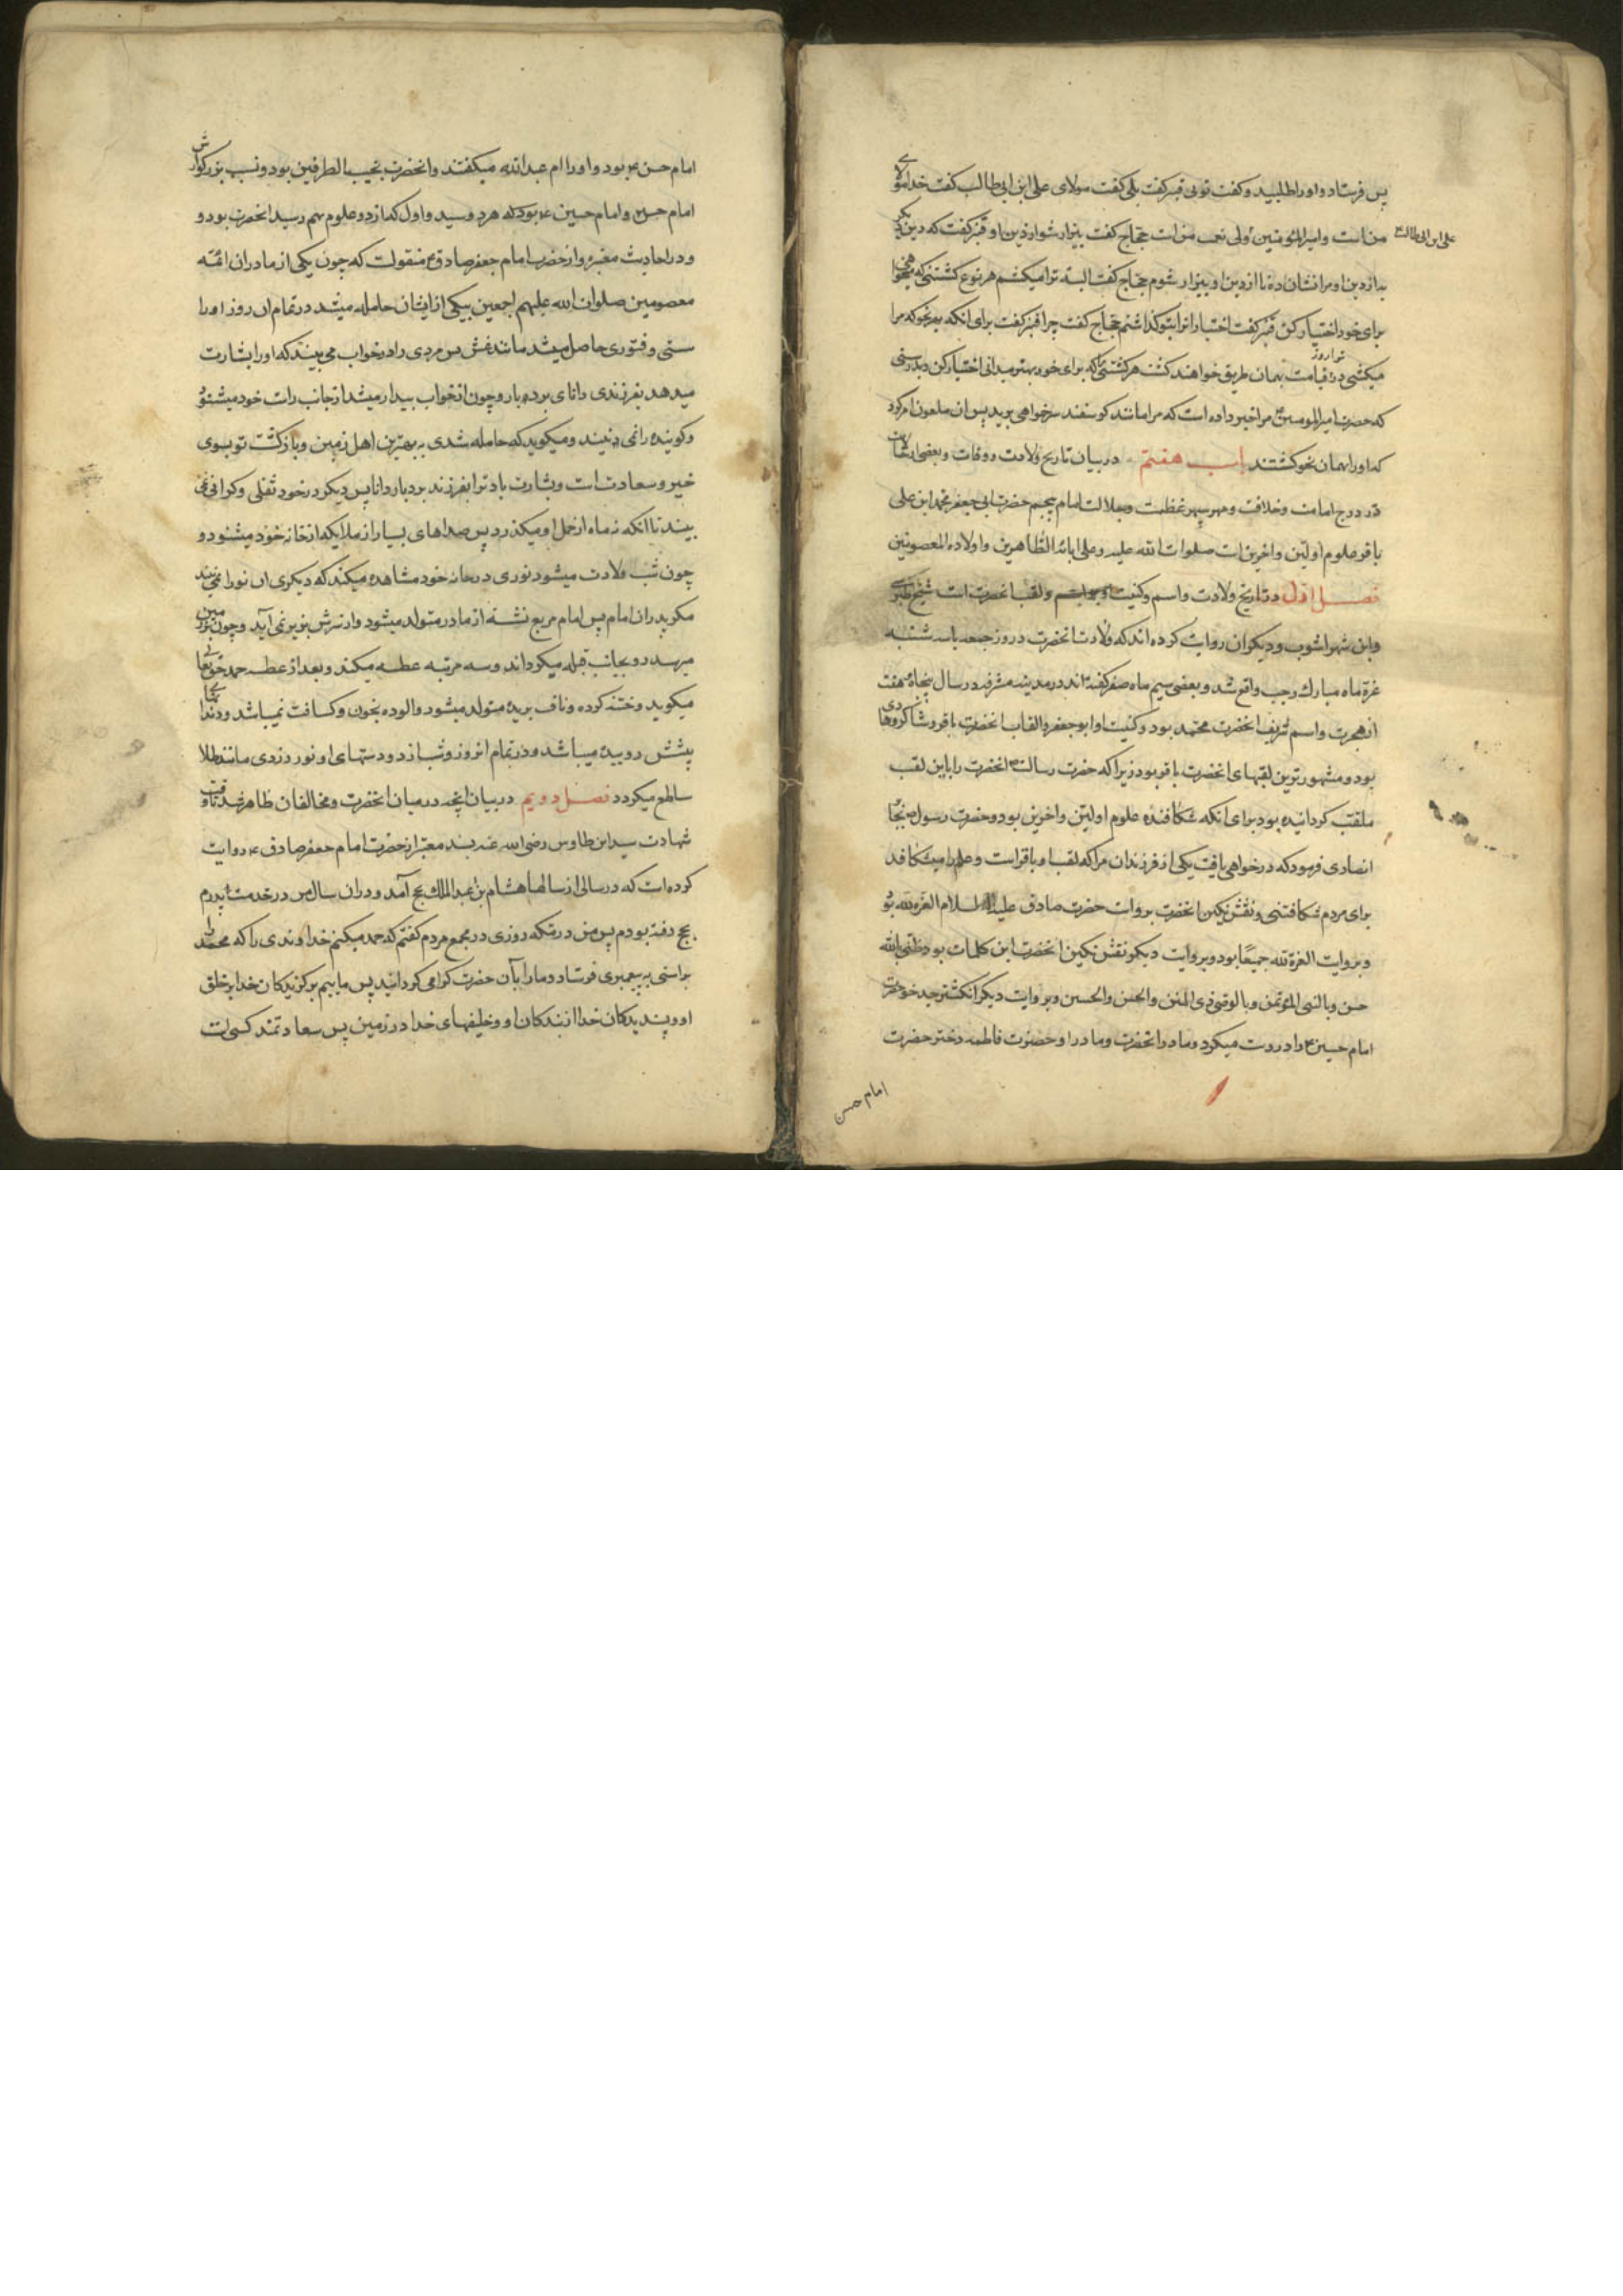 پس فرستاد و اورا طلبید و کفت توبی قنبر کفت بلی کفت مولای علی ابن ابی طالب کفت خدا مولای
من است و امیر المؤمنین ولی نعمت من است حجاج کفت بیزار شو از دین او قنبر کفت که دین دیکر
علی ابن ابی طالب
بدازدین او مرا نشان ده تا از دین او بیزار شوم حجاج کفت البته ترا میکشم هر نوع کشتنی که میخواهی
برای خود اختیار کن قنبر کفت اختیار انرا بتو کذاشتم حجاج کفت چرا قنبر کفت برای انکه بهر نحو که مرا
میکشی در قیامت بهمان طریق خواهند کشت هر کشتنی که برای خود بهتر میدانی اختیار کن بدرستی
ترا روز
که حضرت امیر المومنین مرا خبر داده است که مرا مانند کوسفند سر خواهی برید پس ان ملعون امر کرد
که اورا بهمان نحو کشتند باب هفتم در بیان تاریخ ولادت و وفات و بعضی از حالات
در درج امامت و خلافت و مهر سپهر عظمت و جلالت امام پنجم حضرت ابی جعفر محمد ابن علی
باقر علوم اولین و اخرین است صلوات الله علیه و علی ابائه الطاهرین و اولاده المعصومین
فصل اول در تاریخ ولادت و اسم و کنیت و لقب انحضرت است شیخ طبرسی
و ابن شهراشوب و دیکران روایت کرده اند که ولادت انحضرت در روز جمعه یا سه شنبه
غرة ماه مبارک رجب واقع شد و بعضی سیم ماه صفر کفته اند در مدینه مشرفه در سال پنجاه و هفت
از هجرت و اسم شریف انحضرت محمد بود و کنیت او ابو جعفر و القاب انحضرت باقر و شاکر و هادی
بود و مشهور ترین لقبهای انحضرت باقر بود زیرا که حضرت رسالت انحضرت را باین لقب
ملقب کردانیده بود برای انکه شکافنده علوم اولین و اخرین بود و حضرت رسول بجابر
انصاری فرمود که در خواهی یافت یکی از فرزندان مرا که لقب او باقر است و علم را میشکافد
برای مردم شکافتنی و نقش نکین انحضرت بروایت حضرت صادق علیه السلام العزة لله بود
و بروایت العزة لله جمیعًا بود و بروایت دیکر نقش نکین انحضرت این کلمات بود ظنی بالله
حسن و بالنبی المؤتمن و بالوصی ذی المنن و الحسن و الحسین و بروایت دیکر انکشتر جد خود حضرت
امام حسین را در دست میکرد و مادر انحضرت و مادر او حضرت فاطمه دختر حضرت
امام حسن
امام حسن بود و اورا ام عبدالله میکفتند و انحضرت نجیب الطرفین بود و نسب بزرکوارش
امام حسن و امام حسین بود که هر دو سید و اول که از دو علوم بهم رسید انحضرت بود و
و در احادیث معتبره از حضرت امام جعفر صادق منقولست که چون یکی از مادران ائمه
معصومین صلوات الله علیهم اجمعین بیکی از ایشان حامله میشد در تمام ان روز او را
سستی و فتوری حاصل میشد مانند غش پس مردی را در خواب می بیند که اورا بشارت
میدهد بفرزندی دانای بردبار و چون از خواب بیدار میشد از جانب راست خود میشنود
و کوینده را نمی بیند و میکوید که حامله شدی به بهترین اهل زمین و بازکشت تو بسوی
خیر و سعادت است و بشارت باد ترا بفرزند بردبار دانا پس دیکر در خود ثقلی و کرانی نمی
بیند تا انکه نه ماه از حمل او میکذرد پس صداهای بسیار از ملایکه از خانه خود میشنود و
چون شب ولادت میشود نوری در خانه خود مشاهده میکند که دیکری ان نور را نمی بیند
مکر پدر ان امام پس امام مربع نشسته از مادر متولد میشود و از سرش بزیر نمی آید و چون بزمین
میرسد رو بجانب قبله میکرداند و سه مرتبه عطسه میکند و بعد از عطسه حمد حق تعالی
میکوید و ختنه کرده و ناف بریده متولد میشود و الوده بخون و کسافت نمیباشد و دندانهای
پیشش روییده میباشد و در تمام انروز و شب از دو دستهای او نور زردی مانند طلا
ساطع میکردد فصل دویم در بیان انچه در میان انحضرت و مخالفان ظاهر شد تا وقت
شهادت سید ابن طاوس رضی الله عنه بسند معتبر از حضرت امام جعفر صادق روایت
کرده است که در سالی از سالها هشام بن عبد الملک بحج آمد و در ان سال من در خدمت پدرم
بحج رفته بودم پس من در مکه روزی در مجمع مردم کفتم که حمد میکنم خداوندی را که محمد را
براستی به پیغمبری فرستاد و مارا بآن حضرت کرامی کردانید پس ماییم برکزیدکان خدا بر خلق
او و پسندیدکان خدا از بندکان او و خلیفهای خدا در زمین پس سعادتمند کسی است